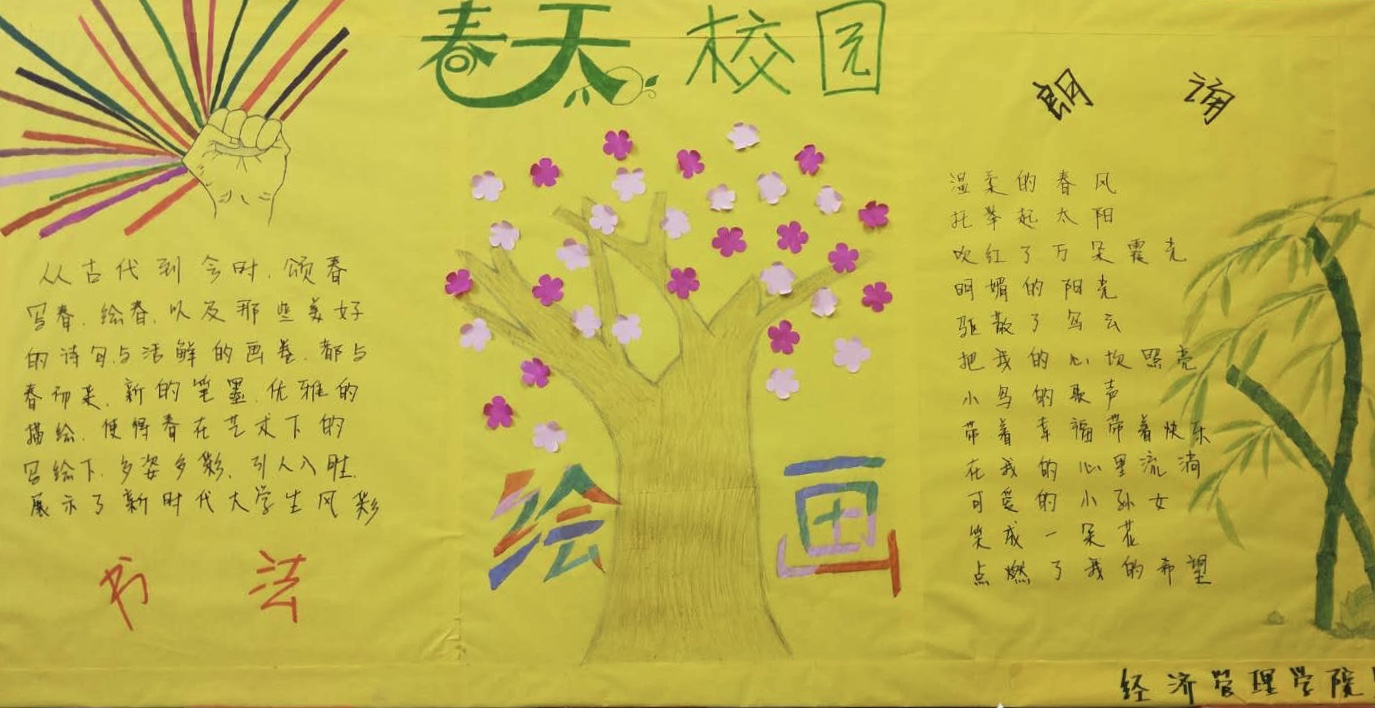 春天校园
从古代到今时，颂春
写春、绘春，以及那些美好
的诗句与活鲜的画卷，都与
春初来，新的笔墨，优雅的
描绘，使得春在艺术下的
写绘下，多姿多彩，引人入胜，
展示了新时代大学生风彩
书法
绘画
朗诵
温柔的春风
托举起太阳
吹红了万朵霞光
明媚的阳光
驱散了乌云
把我的心坎照亮
小鸟的歌声
带着幸福带着快乐
在我的心里流淌
可爱的小孙女
笑成一朵花
点燃了我的希望
经济管理学院